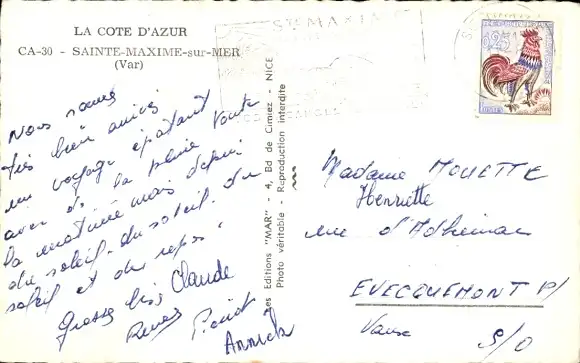 LA COTE D'AZUR
CA-30 - SAINTE-MAXIME-sur-MER
(Var)
Nous sommes
très bien arrivés
un voyage épatant
avec de la pluie toute
la matinée mais depuis
du soleil. du soleil. du
soleil et du repos.
Grosses bises Claude
Annick
Les Editions "MAR" - 4, Bd de Cimiez - NICE
Photo véritable - Reproduction interdite
STE MAXIME
Madame MOUETTE
Henriette
rue d'Adhémar
EVECQUEMONT P/
S/O